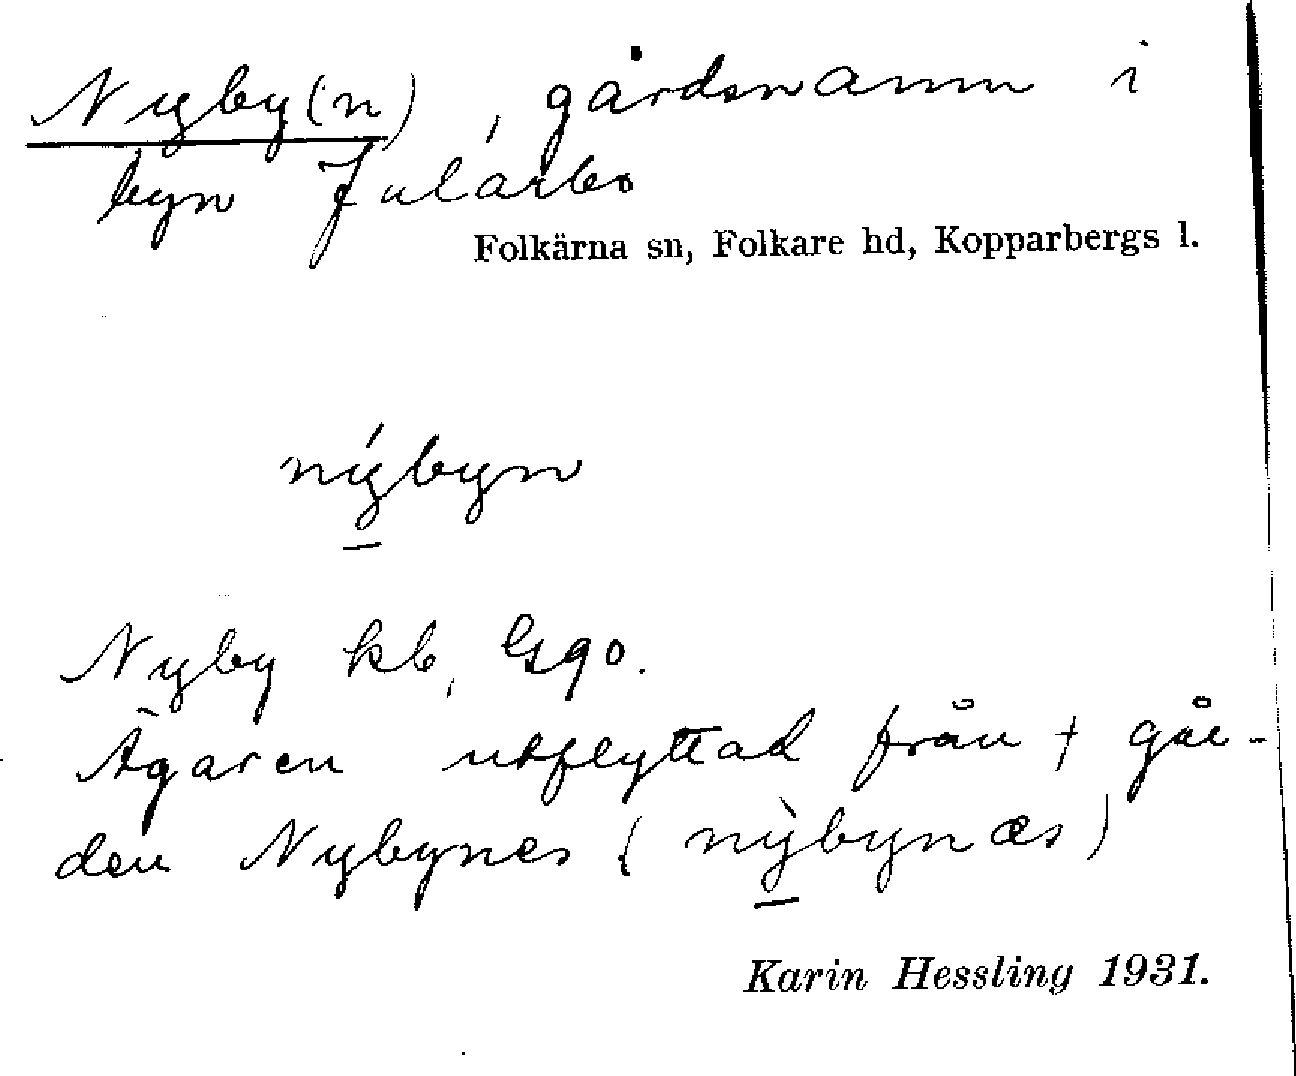 Nyby(n), gårdsnamn i
byn Jularbo
Folkärna sn, Folkare hd, Kopparbergs l.
nýbyn
Nyby kb, G90.
Ägaren utflyttad från † går-
den Nybynes (nỳbynæs)
Karin Hessling 1931.